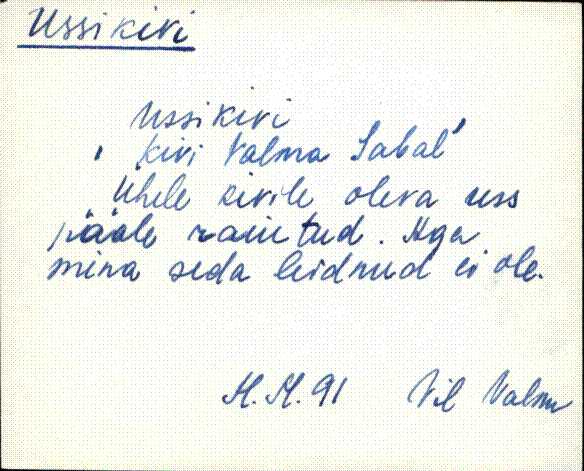 Ussikivi
Ussikivi
'kivi Valma Sabal'
Ühele kivile oleva uss
pääle raiutud. Aga
mina seda leidnud ei ole.
M.M. 91 Vil Valma